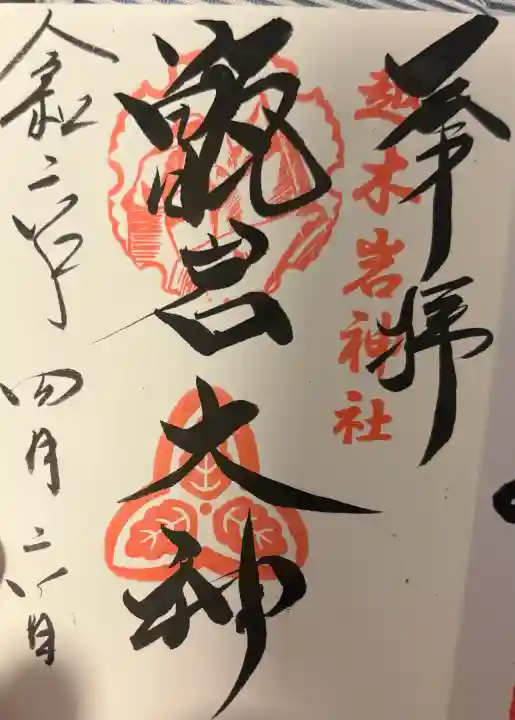 奉拝
越木岩神社
甑岩大神
令和六年四月二八日